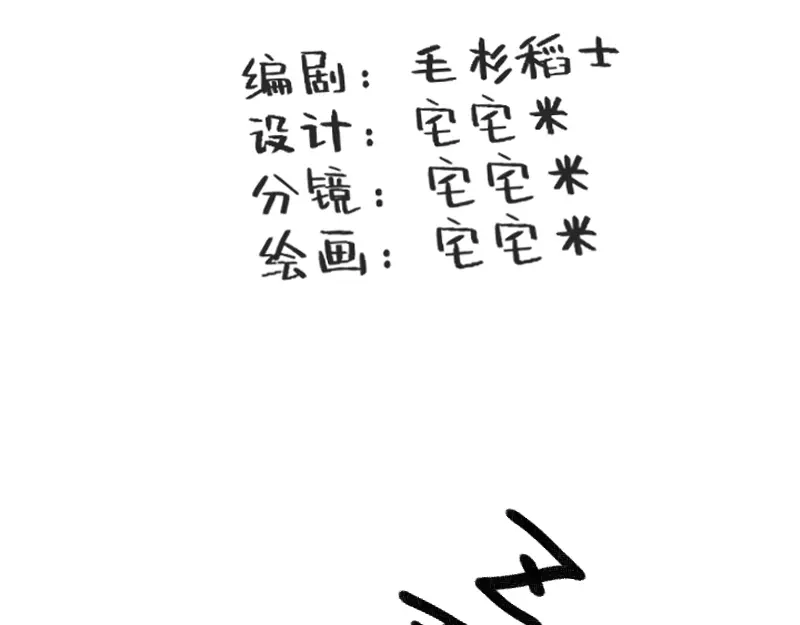 编剧：毛杉稻士
设计：宅宅米
分镜：宅宅米
绘画：宅宅米